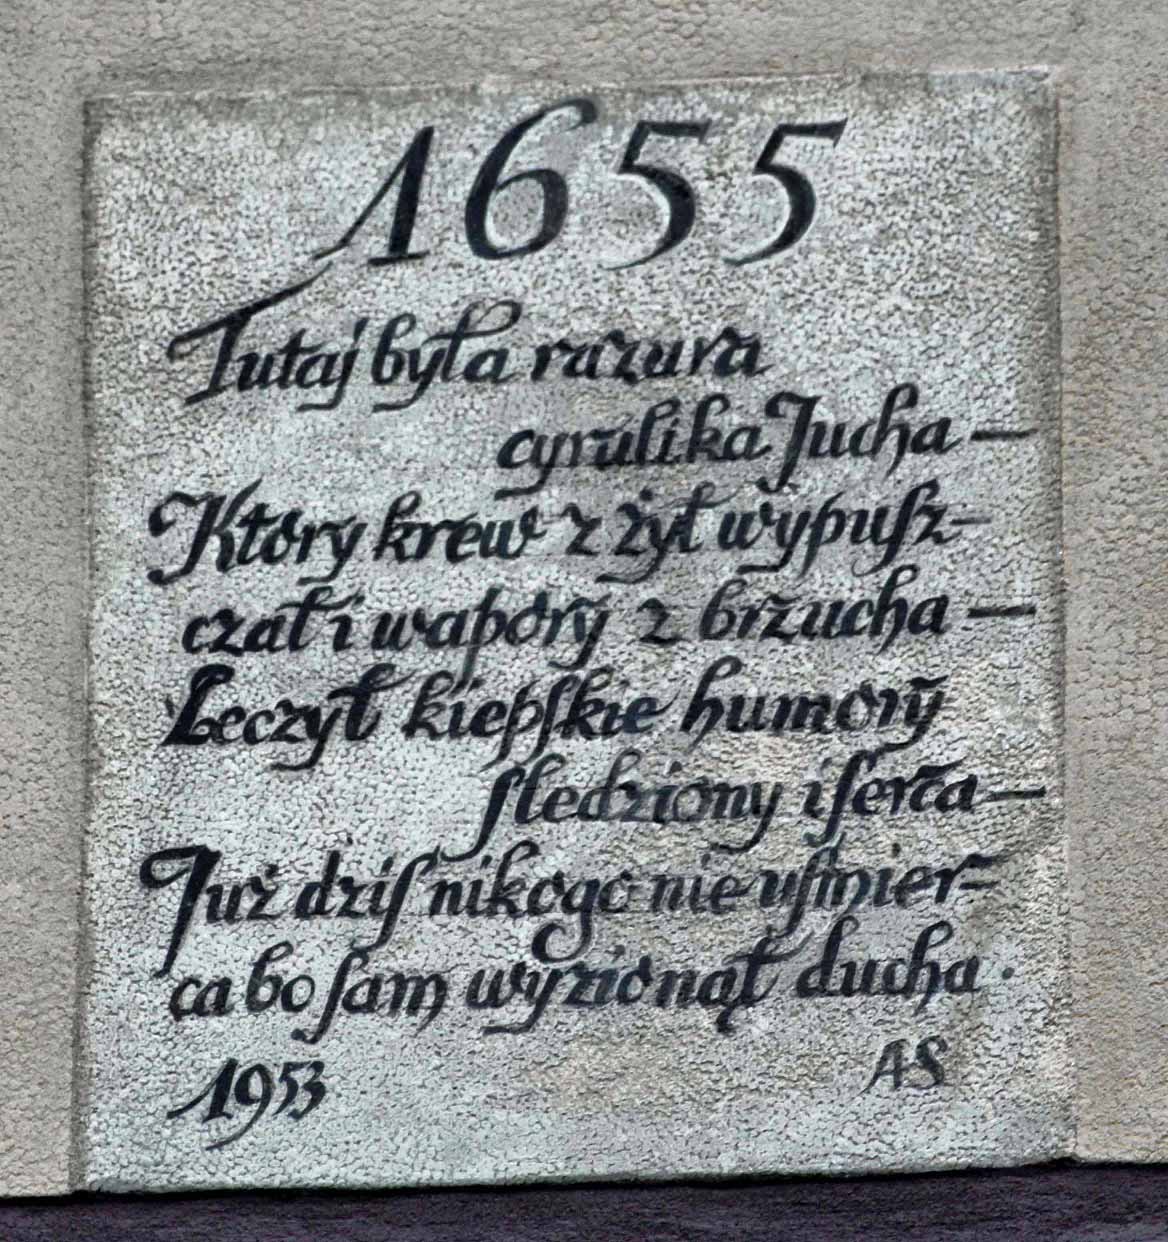 1655
Tutaj była razura
cyrulika Jucha —
Który krew z żył wypuſz-
czał i wapóry z brzucha —
Leczył kiepſkie humory
ſledziony i ſerca —
Już dziſ nikogo nie uſmier-
ca bo ſam wyzionął ducha.
1953 AS